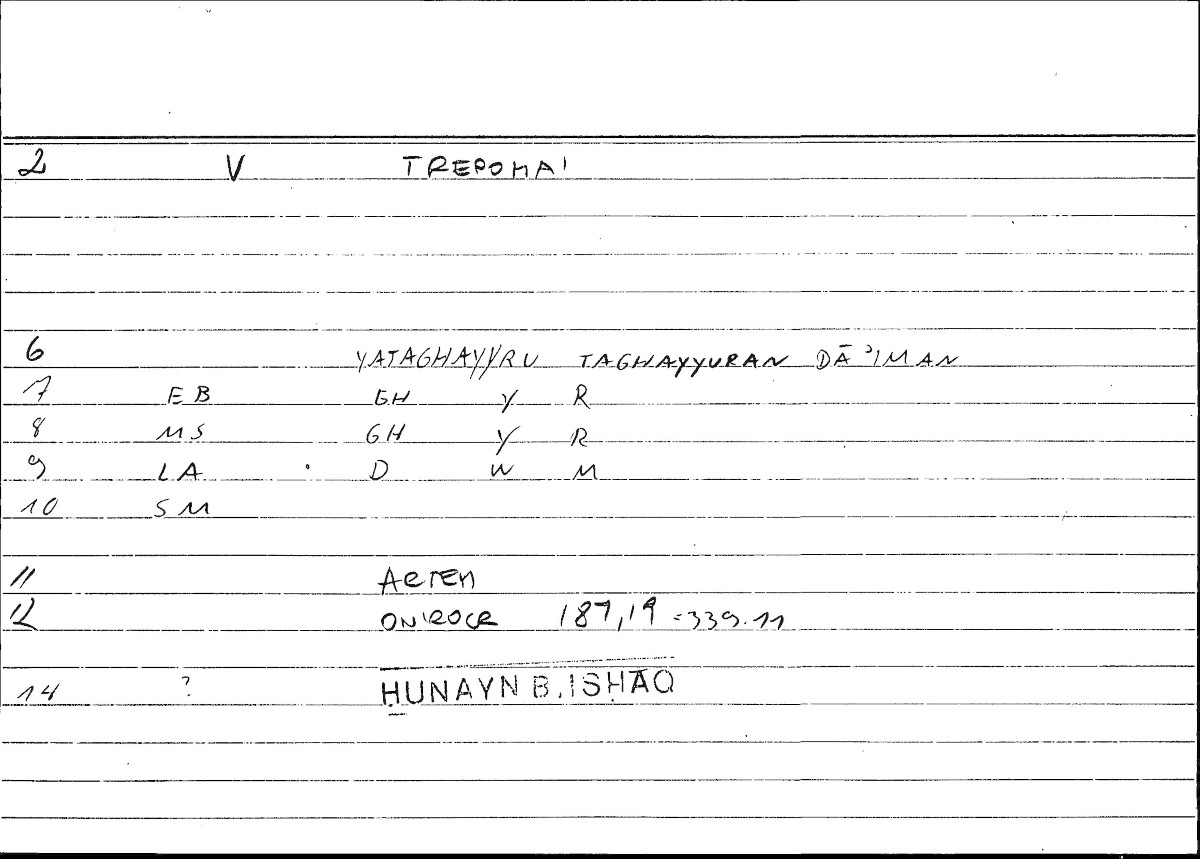 2 V TREPOMAI
6 YATAGHAYYRU TAGHAYYURAN DĀʾIMAN
7 EB GH Y R
8 MS GH Y R
9 LA · D W M
10 SM
11 ARTEM
12 ONIROCR 187,19 = 339.11
14 ? ḤUNAYN B. ISḤĀQ